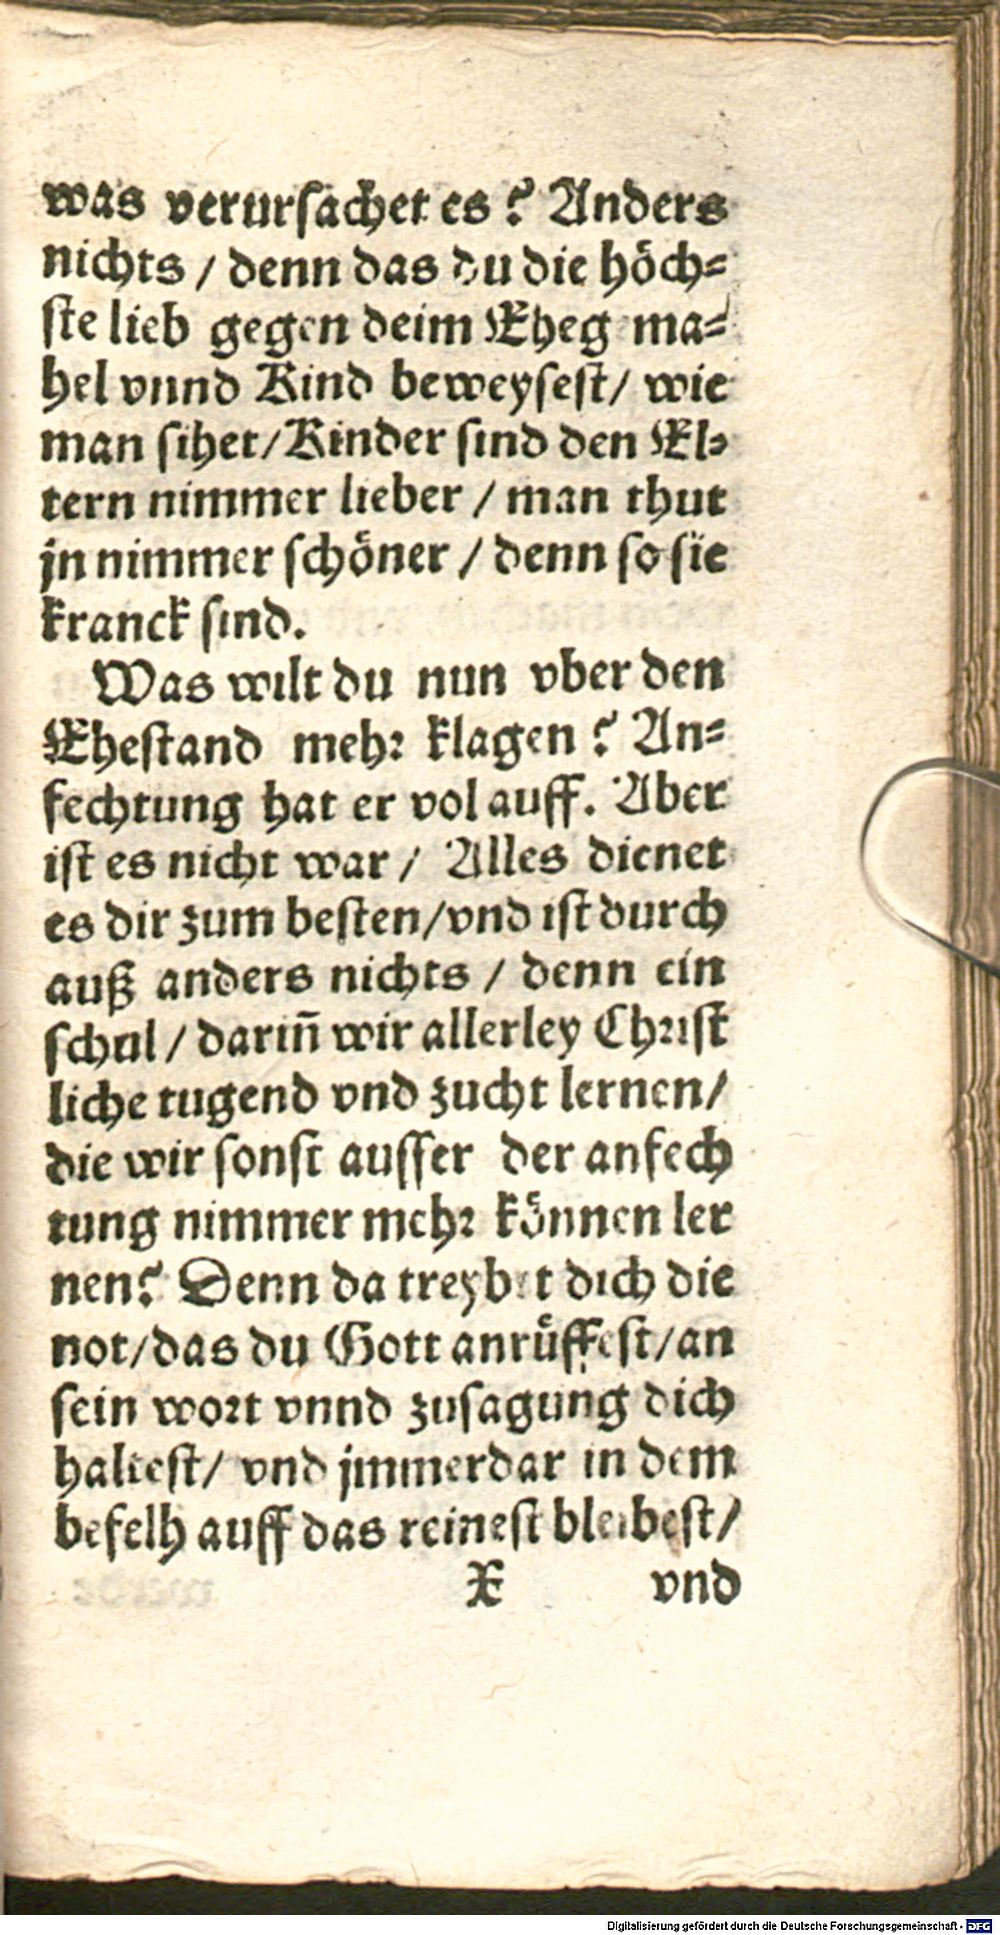 was verursachet es? Anders
nichts / denn das du die höch⸗
ste lieb gegen deim Eheg ma⸗
hel vnnd Kind beweysest/ wie
man sihet/Kinder sind den El⸗
tern nimmer lieber / man thut
jn nimmer schöner / denn so sie
kranck sind.
Was wilt du nun vber den
Ehestand mehr klagen? An⸗
fechtung hat er vol auff. Aber
ist es nicht war / Alles dienet
es dir zum besten/vnd ist durch
auß anders nichts / denn ein
schul / dariñ wir allerley Christ
liche tugend vnd zucht lernen/
die wir sonst ausser der anfech
tung nimmer mehr können ler
nen? Denn da treybet dich die
not/das du Gott anrůffest/an
sein wort vnnd zusagung dich
haltest/ vnd jmmerdar in dem
befelh auff das reinest bleibest/
X vnd
Digitalisierung gefördert durch die Deutsche Forschungsgemeinschaft - DFG